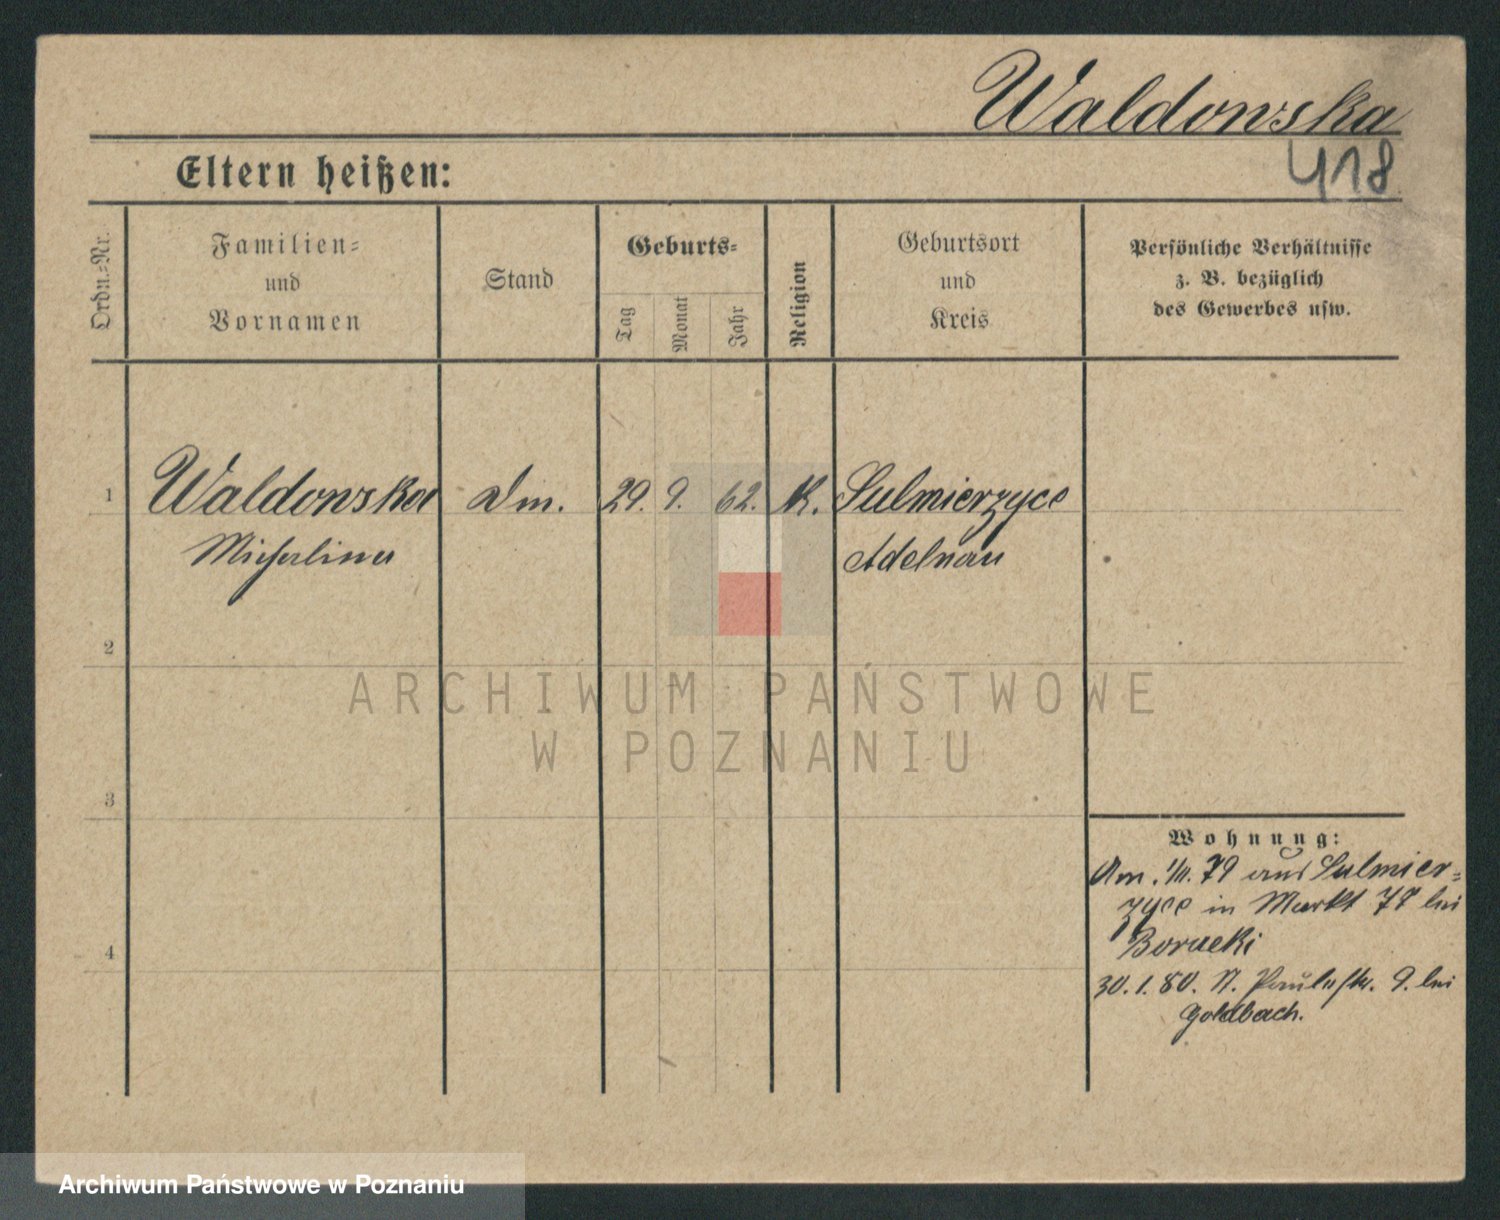 Waldowska
418
Eltern heißen:
Ordn.-Nr.
Familien-
und
Vornamen
Stand
Geburts-
Tag
Monat
Jahr
Religion
Geburtsort
und
Kreis
Persönliche Verhältnisse
z. B. bezüglich
des Gewerbes usw.
1
Waldowska
Dm.
29.
9.
62.
K.
Sulmierzyce
Michalina
Adelnau
2
ARCHIWUM PAŃSTWOWE
W POZNANIU
3
Wohnung:
79 aus Sulmier-
zyce in Markt 78 bei
4
Borucki
30. 1. 80. St. Paulistr. 9. bei
Goldbach.
Archiwum Państwowe w Poznaniu